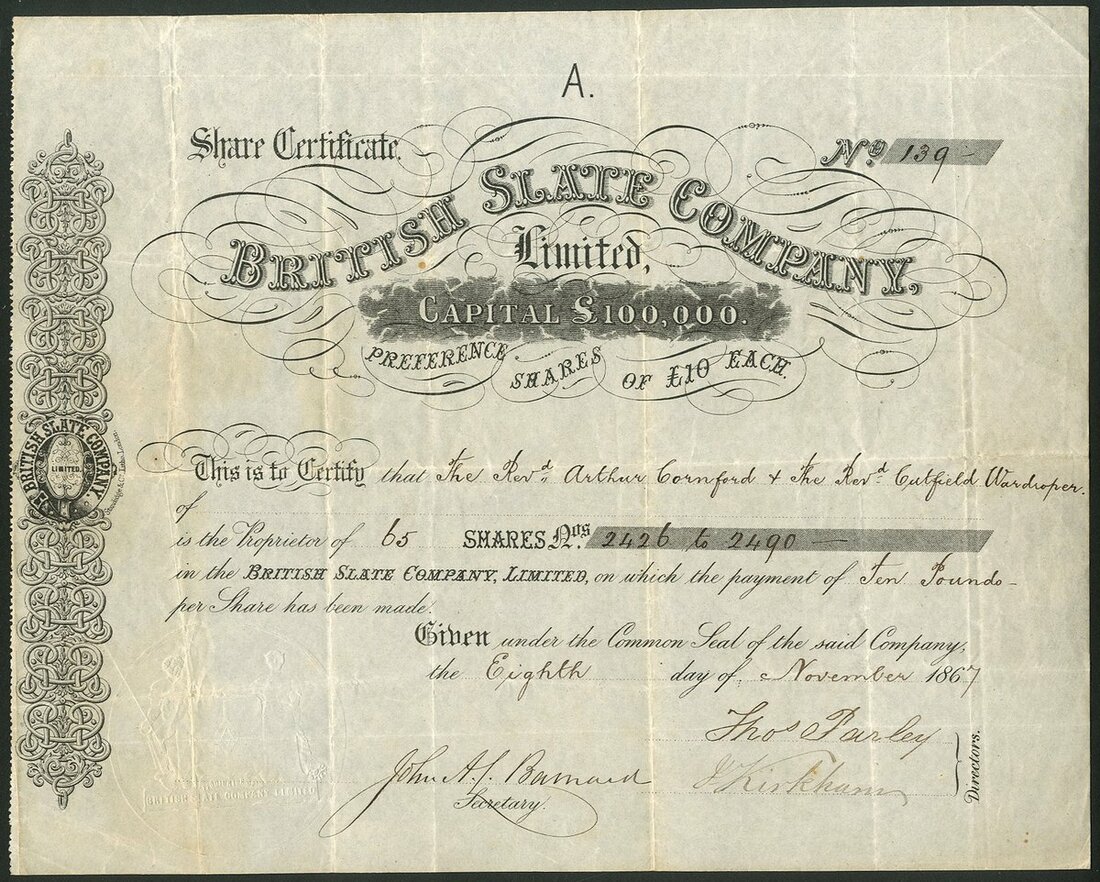 A.
Share Certificate.
No. 139
BRITISH SLATE COMPANY,
Limited,
CAPITAL £100,000.
PREFERENCE SHARES OF £10 EACH.
BRITISH SLATE COMPANY
LIMITED.
This is to Certify that The Revd. Arthur Cornford + The Revd. Cutfield Wardroper.
of
is the Proprietor of 65 SHARES Nos. 2426 to 2490 —
in the BRITISH SLATE COMPANY, LIMITED, on which the payment of Ten Pounds -
per Share has been made.
Given under the Common Seal of the said Company,
the Eighth day of November 1867
Thos Parley
J Kirkham
Directors.
John A. J. Barnard
Secretary
BRITISH SLATE COMPANY LIMITED